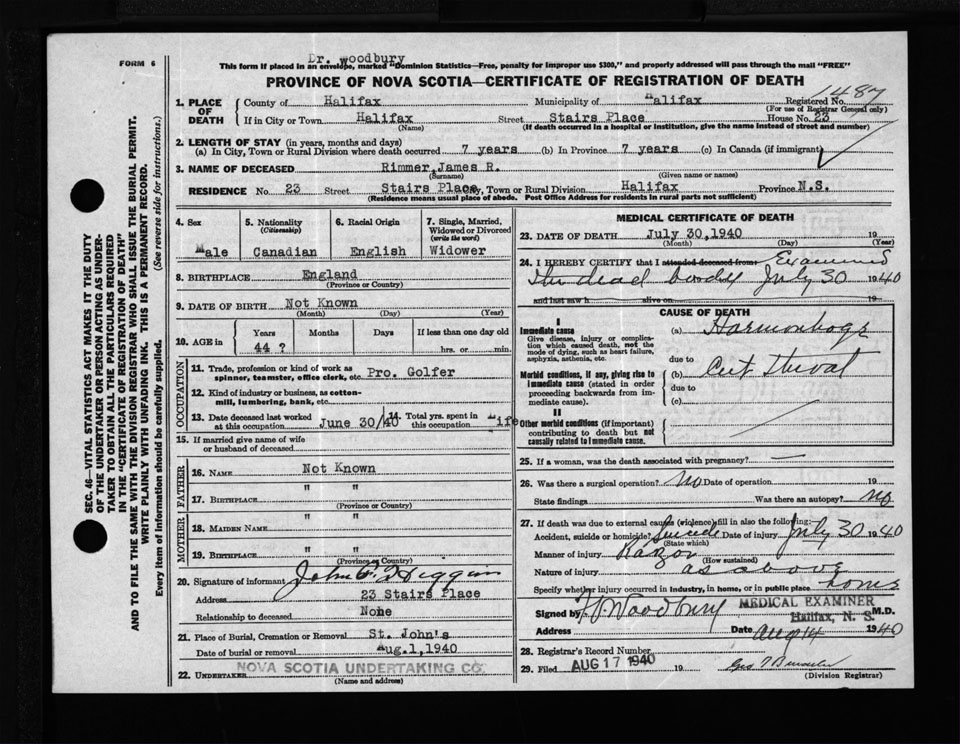 FORM 6
Dr. Woodbury
This form if placed in an envelope, marked "Dominion Statistics—Free, penalty for improper use $300," and properly addressed will pass through the mail "FREE"
PROVINCE OF NOVA SCOTIA—CERTIFICATE OF REGISTRATION OF DEATH
1487
1. PLACE OF DEATH
County of Halifax Municipality of Halifax Registered No.
(For use of Registrar General only)
If in City or Town Halifax Street Stairs Place House No. 23
(Name) (If death occurred in a hospital or institution, give the name instead of street and number)
2. LENGTH OF STAY (in years, months and days)
(a) In City, Town or Rural Division where death occurred 7 years (b) In Province 7 years (c) In Canada (if immigrant)
3. NAME OF DECEASED Rimmer, James R.
(Surname) (Given name or names)
RESIDENCE No. 23 Street Stairs Place City, Town or Rural Division Halifax Province N.S.
(Residence means usual place of abode. Post Office Address for residents in rural parts not sufficient)
4. Sex
Male
5. Nationality
(Citizenship)
Canadian
6. Racial Origin
English
7. Single, Married,
Widowed or Divorced
(write the word)
Widower
8. BIRTHPLACE England
(Province or Country)
9. DATE OF BIRTH Not Known
(Month) (Day) (Year)
10. AGE in
Years Months Days If less than one day old
44 ? hrs. or min.
OCCUPATION
11. Trade, profession or kind of work as
spinner, teamster, office clerk, etc. Pro. Golfer
12. Kind of industry or business, as cotton-
mill, lumbering, bank, etc.
13. Date deceased last worked
at this occupation June 30/40
14. Total yrs. spent in
this occupation Life
15. If married give name of wife
or husband of deceased
FATHER
16. NAME Not Known
17. BIRTHPLACE " "
(Province or Country)
MOTHER
18. MAIDEN NAME " "
19. BIRTHPLACE " "
(Province or Country)
20. Signature of informant John F. Higgins
Address 23 Stairs Place
Relationship to deceased None
21. Place of Burial, Cremation or Removal St. John's
Date of burial or removal Aug.1,1940
22. UNDERTAKER NOVA SCOTIA UNDERTAKING CO.
(Name and address)
MEDICAL CERTIFICATE OF DEATH
23. DATE OF DEATH July 30,1940 19
(Month) (Day) (Year)
24. I HEREBY CERTIFY that I attended deceased from: Examined
the dead body July 30 1940
and last saw h alive on 19
CAUSE OF DEATH
I
Immediate cause
Give disease, injury or complica-
tion which caused death, not the
mode of dying, such as heart failure,
asphyxia, asthenia, etc.
(a) Harmonhoge
due to
Morbid conditions, if any, giving rise to
immediate cause (stated in order
proceeding backwards from im-
mediate cause).
(b) Cut Throat
due to
(c)
II
Other morbid conditions (if important)
contributing to death but not
causally related to immediate cause.
25. If a woman, was the death associated with pregnancy? —
26. Was there a surgical operation? No Date of operation 19
State findings Was there an autopsy? No
27. If death was due to external causes (violence) fill in also the following:
Accident, suicide or homicide? Suicide Date of injury July 30 1940
(State which)
Manner of injury Razor
(How sustained)
Nature of injury as above
Specify whether injury occurred in industry, in home, or in public place home
Signed by M.D.
Woodbury
MEDICAL EXAMINER
Halifax, N. S.
Address Date Aug 14 1940
28. Registrar's Record Number
29. Filed AUG 17 1940 19
(Division Registrar)
SEC. 46—VITAL STATISTICS ACT MAKES IT THE DUTY
OF THE UNDERTAKER OR PERSON ACTING AS UNDER-
TAKER TO OBTAIN ALL THE PARTICULARS REQUIRED
IN THE "CERTIFICATE OF REGISTRATION OF DEATH"
AND TO FILE THE SAME WITH THE DIVISION REGISTRAR WHO SHALL ISSUE THE BURIAL PERMIT.
WRITE PLAINLY WITH UNFADING INK. THIS IS A PERMANENT RECORD.
Every item of information should be carefully supplied. (See reverse side for instructions.)